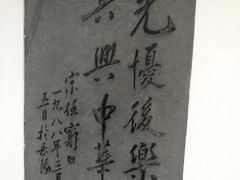 先憂後樂
共興中華
宗任窮
一九八八年三月
五日於岳陽